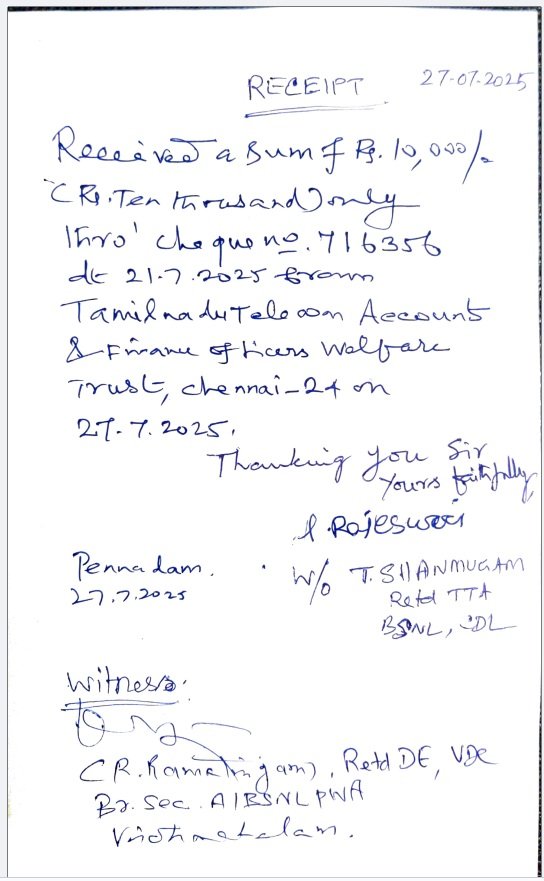 RECEIPT 27-07-2025
Received a sum of Rs. 10,000/-
(Rs. Ten thousand) only
thro' cheque no. 716356
dt 21.7.2025 from
Tamilnadu Telecom Accounts
& Finance officers Welfare
Trust, Chennai-24 on
27.7.2025.
Thanking you Sir
Yours faithfully
Rajeswari
Pennadam. W/o T. SHANMUGAM
27.7.2025 Retd TTA
BSNL, CDL
Witness:
(R. Ramalingam), Retd DE, VDC
Br. Sec. AIBSNLPWA